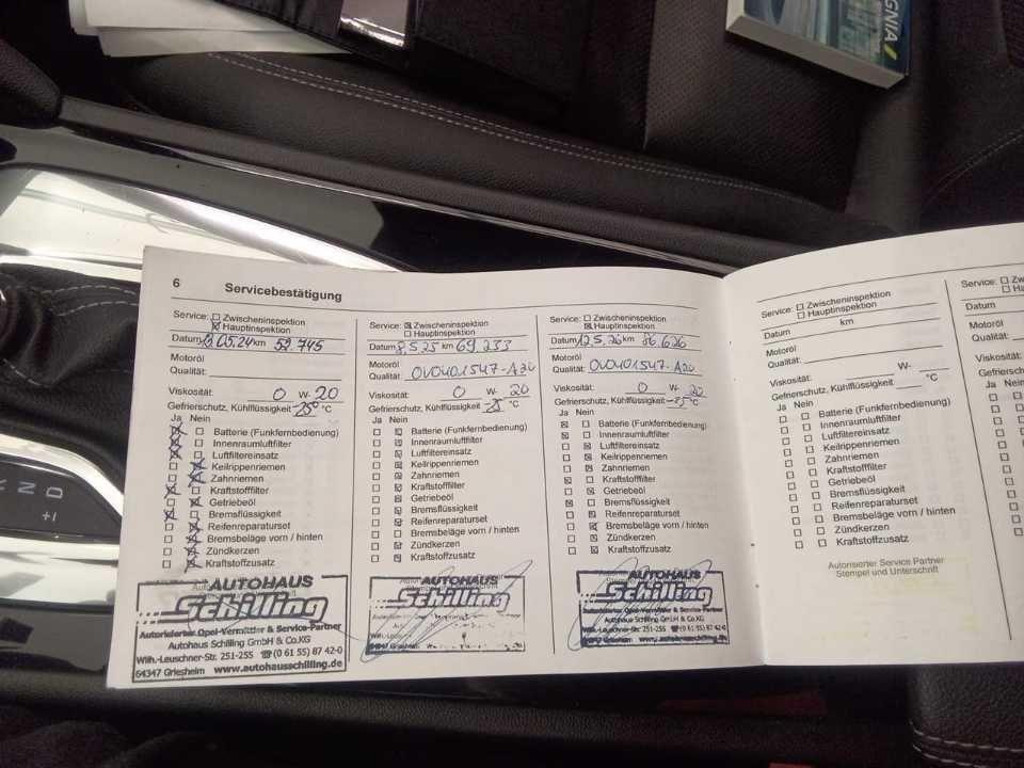 IGNIA
6
Servicebestätigung
Service: ☐ Zwischeninspektion
☒ Hauptinspektion
Datum 05.24 km 52.745
Motoröl
Qualität:
Viskosität: 0 W- 20
Gefrierschutz, Kühlflüssigkeit -25° °C
Ja Nein
☒ ☐ Batterie (Funkfernbedienung)
☒ ☐ Innenraumluftfilter
☒ ☐ Luftfiltereinsatz
☐ ☒ Keilrippenriemen
☐ ☒ Zahnriemen
☒ ☐ Kraftstofffilter
☐ ☒ Getriebeöl
☒ ☐ Bremsflüssigkeit
☐ ☒ Reifenreparaturset
☐ ☒ Bremsbeläge vorn / hinten
☐ ☒ Zündkerzen
☐ ☒ Kraftstoffzusatz
AUTOHAUS
Schilling
Autorisierter Opel-Vermittler & Service-Partner
Autohaus Schilling GmbH & Co.KG
Wilh.-Leuschner-Str. 251-255 ☎ (0 61 55) 87 42-0
64347 Griesheim www.autohausschilling.de
Service: ☒ Zwischeninspektion
☐ Hauptinspektion
Datum 8.5.25 km 69.233
Motoröl
Qualität: OVO401547-A20
Viskosität: 0 W- 20
Gefrierschutz, Kühlflüssigkeit -25 °C
Ja Nein
☐ ☒ Batterie (Funkfernbedienung)
☐ ☒ Innenraumluftfilter
☐ ☒ Luftfiltereinsatz
☐ ☒ Keilrippenriemen
☐ ☒ Zahnriemen
☐ ☒ Kraftstofffilter
☐ ☒ Getriebeöl
☐ ☒ Bremsflüssigkeit
☐ ☒ Reifenreparaturset
☐ ☐ Bremsbeläge vorn / hinten
☐ ☒ Zündkerzen
☐ ☒ Kraftstoffzusatz
AUTOHAUS
Schilling
Service: ☐ Zwischeninspektion
☒ Hauptinspektion
Datum 12.5.26 km 86.626
Motoröl
Qualität: OVO401547-A20
Viskosität: 0 W- 20
Gefrierschutz, Kühlflüssigkeit -25 °C
Ja Nein
☒ ☐ Batterie (Funkfernbedienung)
☒ ☐ Innenraumluftfilter
☐ ☒ Luftfiltereinsatz
☐ ☒ Keilrippenriemen
☐ ☒ Zahnriemen
☒ ☐ Kraftstofffilter
☐ ☒ Getriebeöl
☒ ☐ Bremsflüssigkeit
☐ ☒ Reifenreparaturset
☐ ☒ Bremsbeläge vorn / hinten
☐ ☒ Zündkerzen
☐ ☒ Kraftstoffzusatz
AUTOHAUS
Schilling
Autorisierter Opel-Vermittler & Service-Partner
Autohaus Schilling GmbH & Co.KG
Wilh.-Leuschner-Str. 251-255 ☎ (0 61 55) 87 42 0
64347 Griesheim www.autohausschilling.de
Service: ☐ Zwischeninspektion
☐ Hauptinspektion
Datum km
Motoröl
Qualität:
Viskosität: W-
Gefrierschutz, Kühlflüssigkeit °C
Ja Nein
☐ ☐ Batterie (Funkfernbedienung)
☐ ☐ Innenraumluftfilter
☐ ☐ Luftfiltereinsatz
☐ ☐ Keilrippenriemen
☐ ☐ Zahnriemen
☐ ☐ Kraftstofffilter
☐ ☐ Getriebeöl
☐ ☐ Bremsflüssigkeit
☐ ☐ Reifenreparaturset
☐ ☐ Bremsbeläge vorn / hinten
☐ ☐ Zündkerzen
☐ ☐ Kraftstoffzusatz
Autorisierter Service Partner
Stempel und Unterschrift
Service: ☐ Zw
☐ Ha
Datum
Motoröl
Qualität:
Viskosität:
Gefriersch
Ja Nein
N D
+I